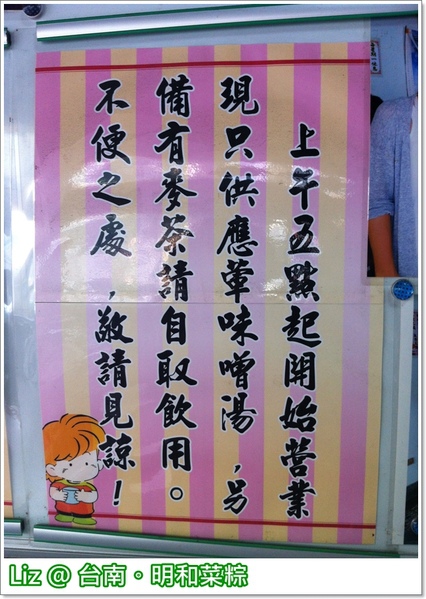 上午五點起開始營業
現只供應葷味噌湯,另
備有麥茶請自取飲用。
不便之處,敬請見諒!
Liz @ 台南。明和菜粽